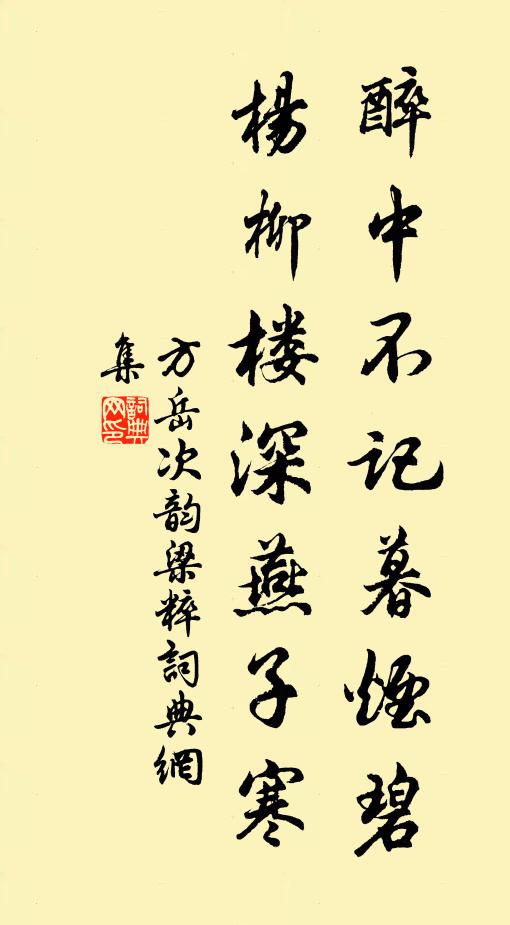 醉中不记暮烟碧
杨柳楼深燕子寒
方岳次韵梁粹詞典網
集
詞典
网印